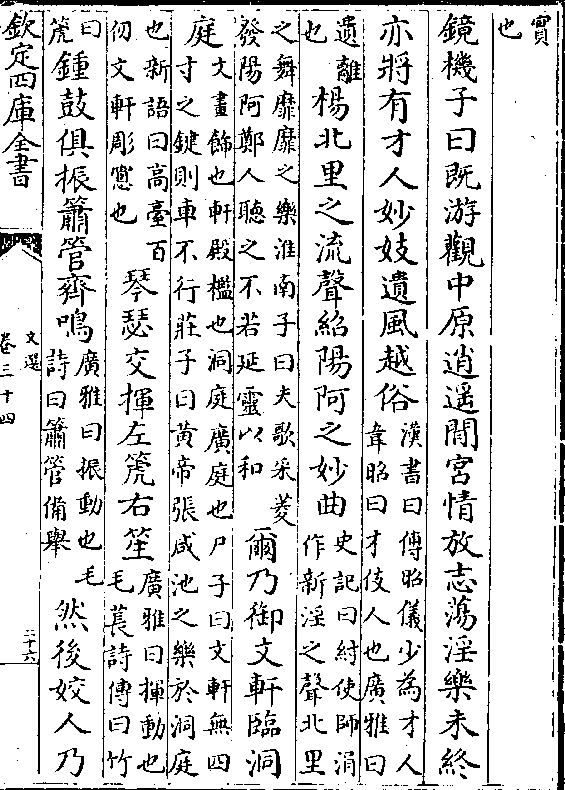 實
也
鏡機子曰既游觀中原逍遥閒宮情放志蕩淫樂未終
亦將有才人妙妓遺風越俗
漢書曰傅昭儀少為才人
韋昭曰才伎人也廣雅曰
遺離
也
楊北里之流聲紹陽阿之妙曲
史記曰紂使師涓
作新淫之聲北里
之舞靡靡之樂淮南子曰夫歌采菱
發陽阿鄭人聽之不若延靈以和
爾乃御文軒臨洞
庭
文畫飾也軒殿檻也洞庭廣庭也尸子曰文軒無四
寸之鍵則車不行莊子曰黃帝張咸池之樂於洞庭
也新語曰高臺百
仞文軒彫窻也
琴瑟交揮左篪右笙
廣雅曰揮動也
毛萇詩傳曰竹
曰
篪
鍾鼓俱振簫管齊鳴
廣雅曰振動也毛
詩曰簫管備舉
然後姣人乃
欽定四庫全書
文選
卷三十四
二十六